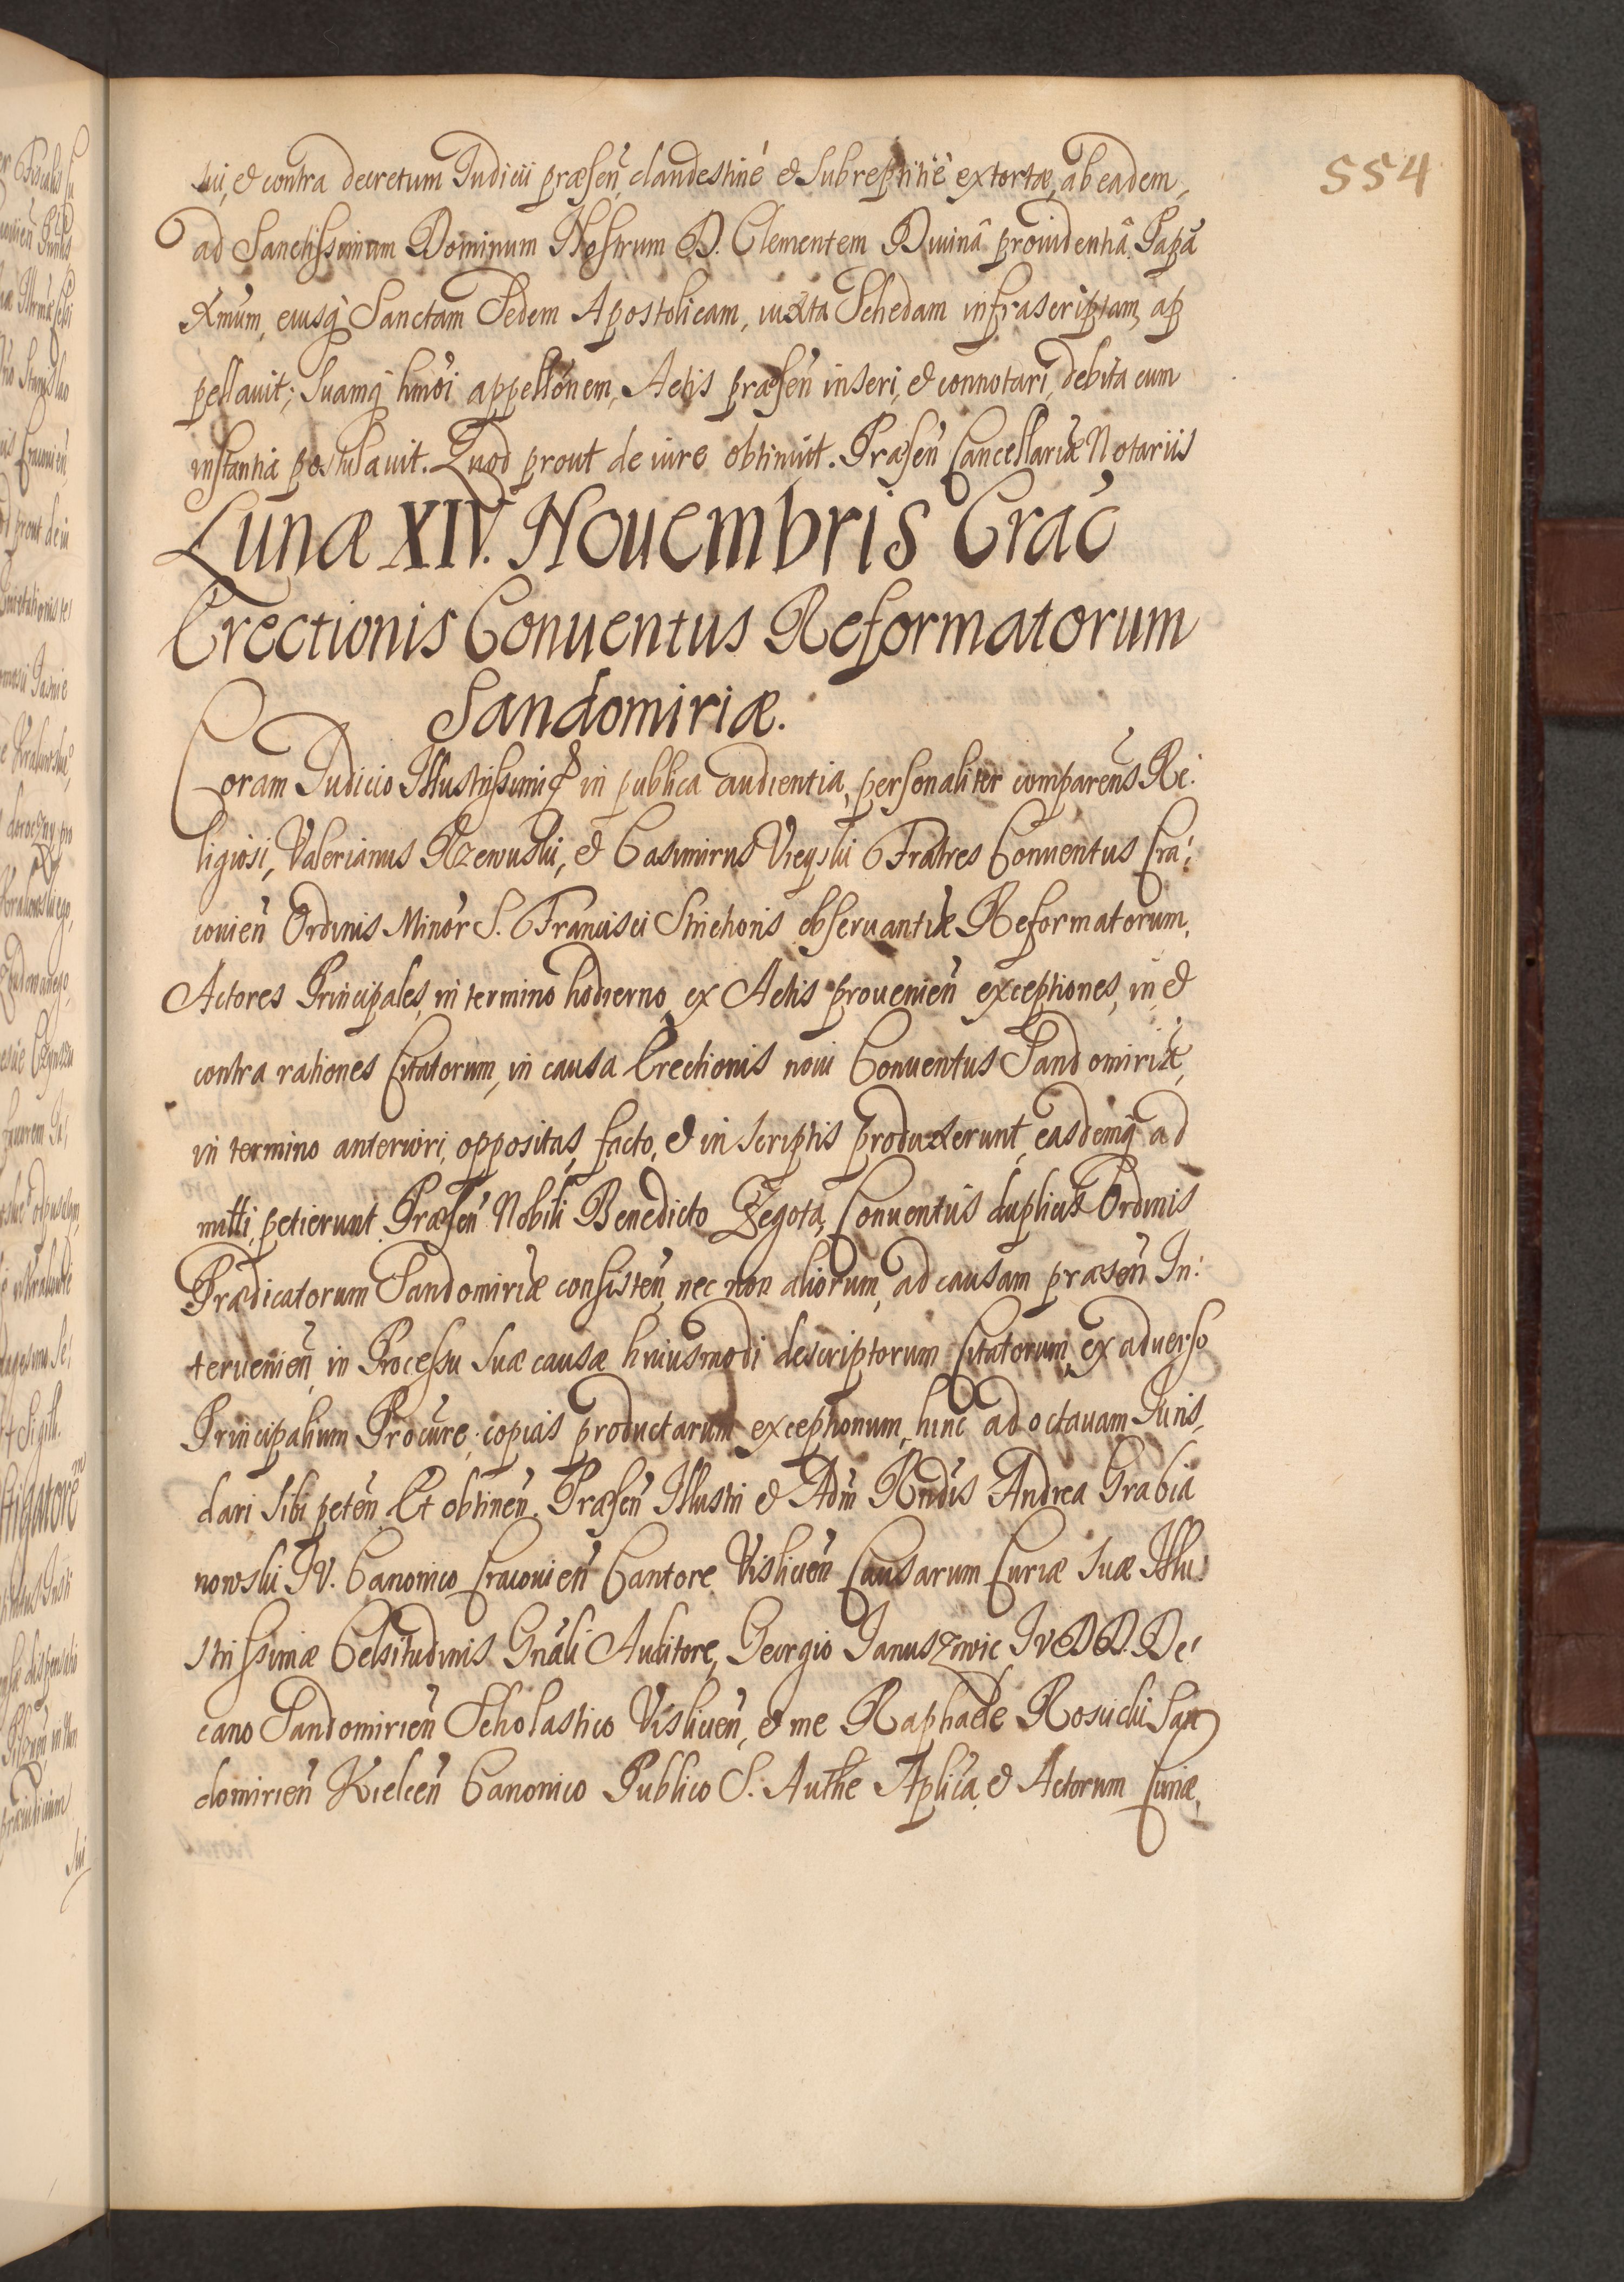 554
sui, et contra decretum Iudicii præsen̄ clandestinè et Subreptitiè extortæ, ab eadem,
ad Sanctissimum Dominum Nostrum D. Clementem Diuinâ prouidentiâ Papā
Xmum, eiusq́ Sanctam Sedem Apostolicam, iuxta Schedam infrascriptam, ap
pellauit; Suamq́ hmōi appellōnem, Actis præsen̄ inseri, et connotari, debita cum
instantia postulauit. Quod prout de iure obtinuit. Præsen̄ Cancellariæ Notariis
Lunæ XIV. Nouembris Crac̄
Erectionis Conuentus Reformatorum
Sandomiriæ.
Coram Iudicio Illustrissimi in publica audientia, personaliter comparen̄s Re:
ligiosi, Valerianus Rzewuski, et Casimirus Fratres Conuentus Cra:
couien̄ Ordinis Minor̄ S. Francisci Strictioris obseruantiæ Reformatorum,
Actores Principales, in termino hodierno, ex Actis prouenien̄ exceptiones, in, et
contra rationes Citatorum, in causa Erectionis noui Conuentus Sandomiriæ,
in termino anteriori, oppositas, facto, et in scriptis produxerunt, easdemq́ ad
mitti, petierunt. Præsen̄ Nobili Benedicto Zegota, Conuentūs duplicis Ordinis
Prædicatorum Sandomiriæ consisten̄, nec non aliorum, ad causam præsen̄ In:
teruenien̄, in Processu suæ causæ huiusmodi descriptorum Citatorum, ex aduerso
Principalium Procūre, copias productarum exceptionum, hinc ad octauam Iuris,
dari sibi peten̄ Et obtinen̄. Præsen̄ Illustri et Adm̄ Rndis Andrea Grabia
nowski IV. Canonico Cracouien̄ Cantore Vislicien̄ Causarum Curiæ Suæ Illu:
strissimæ Celsitudinis Gnāli Auditore, Georgio Ianuszowic IVDD. De:
cano Sandomirien̄ Scholastico Vislicien̄, et me Raphaele San
domirien̄ Kielcen̄ Canonico Publico S. Authē Aplica, et Actorum Curiæ,